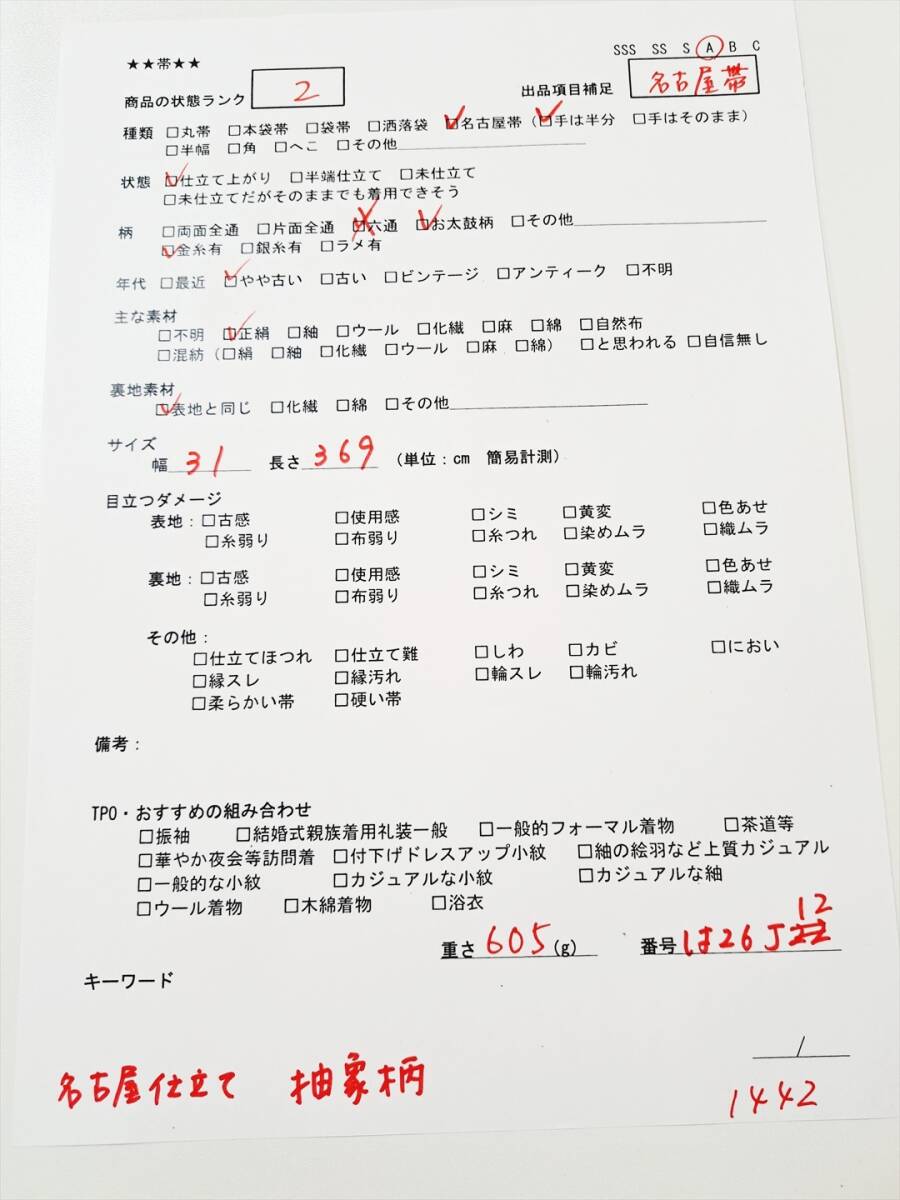 SSS SS S A B C
★★帯★★
商品の状態ランク 2 出品項目補足 名古屋帯
種類 □丸帯 □本袋帯 □袋帯 □洒落袋 ☑名古屋帯（☑手は半分 □手はそのまま）
□半幅 □角 □へこ □その他
状態 ☑仕立て上がり □半端仕立て □未仕立て
□未仕立てだがそのままでも着用できそう
柄 □両面全通 □片面全通 □六通 ☑お太鼓柄 □その他
☑金糸有 □銀糸有 □ラメ有
年代 □最近 ☑やや古い □古い □ビンテージ □アンティーク □不明
主な素材
□不明 ☑正絹 □紬 □ウール □化繊 □麻 □綿 □自然布
□混紡（□絹 □紬 □化繊 □ウール □麻 □綿） □と思われる □自信無し
裏地素材
☑表地と同じ □化繊 □綿 □その他
サイズ
幅 31 長さ 369 （単位：cm 簡易計測）
目立つダメージ
表地：□古感 □使用感 □シミ □黄変 □色あせ
□糸弱り □布弱り □糸つれ □染めムラ □織ムラ
裏地：□古感 □使用感 □シミ □黄変 □色あせ
□糸弱り □布弱り □糸つれ □染めムラ □織ムラ
その他：
□仕立てほつれ □仕立て難 □しわ □カビ □におい
□縁スレ □縁汚れ □輪スレ □輪汚れ
□柔らかい帯 □硬い帯
備考：
TPO・おすすめの組み合わせ
□振袖 □結婚式親族着用礼装一般 □一般的フォーマル着物 □茶道等
□華やか夜会等訪問着 □付下げドレスアップ小紋 □紬の絵羽など上質カジュアル
□一般的な小紋 □カジュアルな小紋 □カジュアルな紬
□ウール着物 □木綿着物 □浴衣
12
重さ 605 (g) 番号 は26J22
キーワード
/
名古屋仕立て 抽象柄
1442